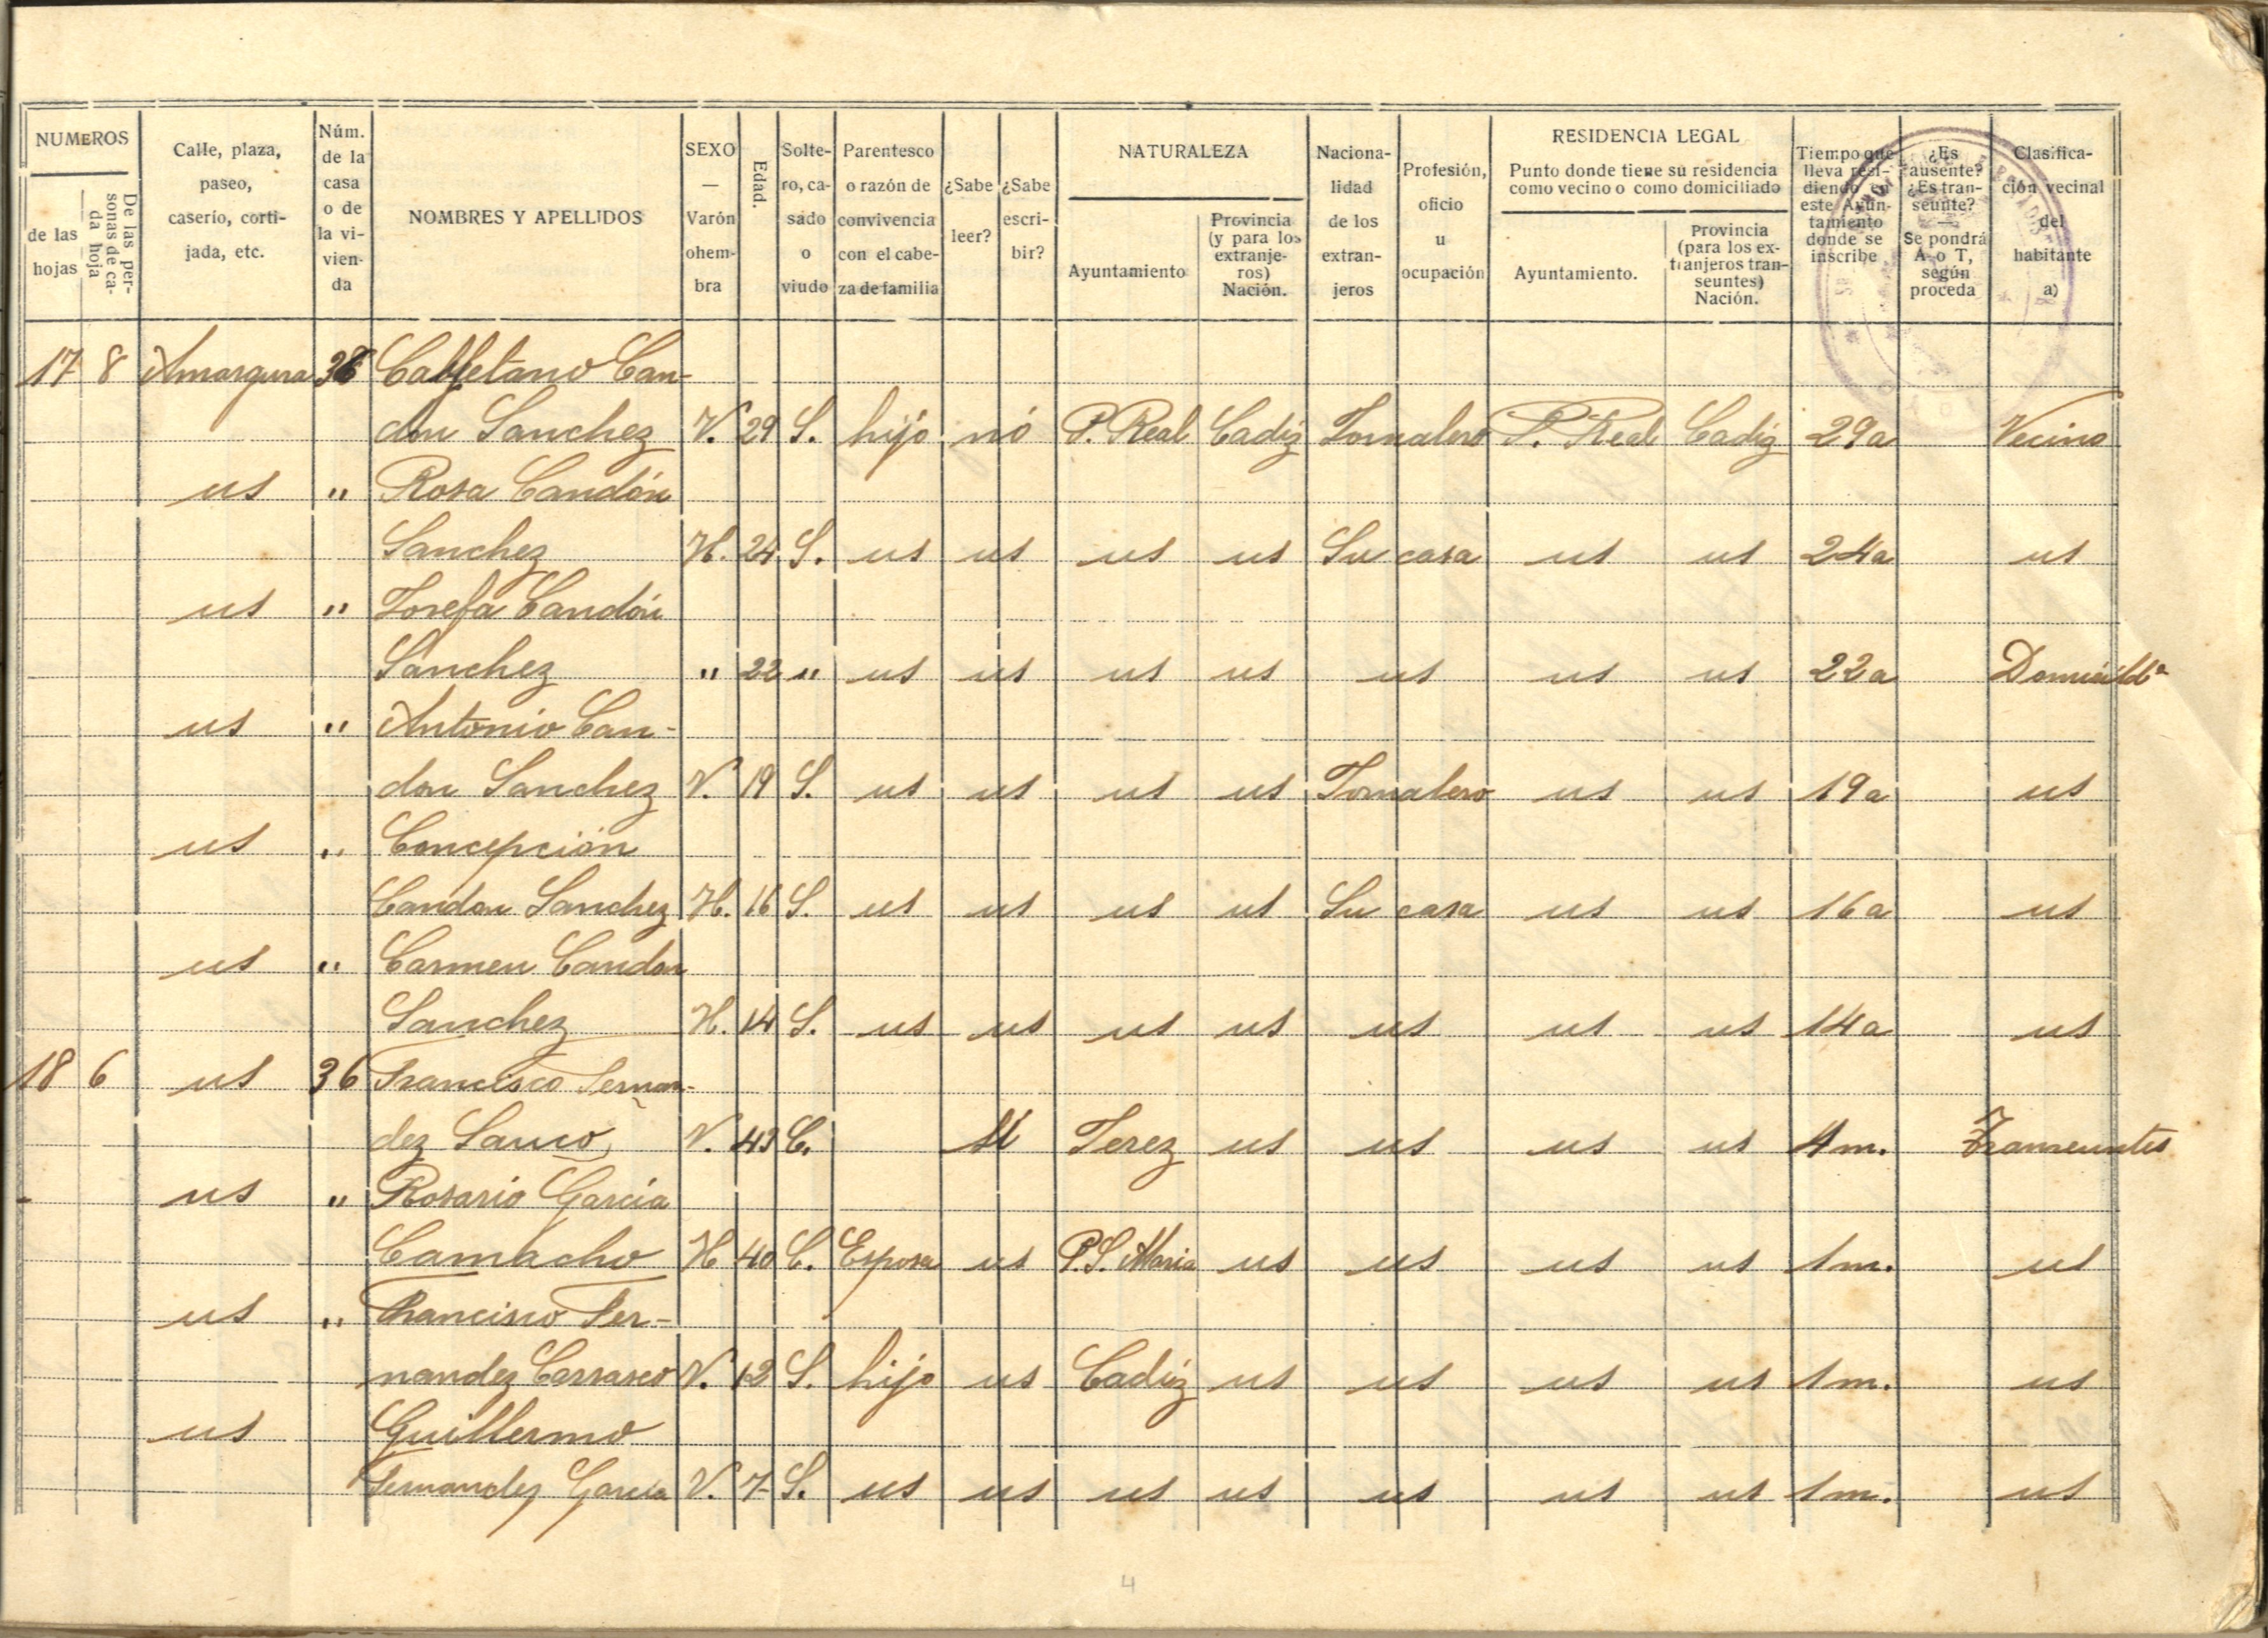 NUMEROS
de las hojas
De las personas de cada hoja
Calle, plaza, paseo, caserío, cortijada, etc.
Núm. de la casa o de la vivienda
NOMBRES Y APELLIDOS
SEXO — Varón ohembra
Edad.
Soltero, casado o viudo
Parentesco o razón de convivencia con el cabeza de familia
¿Sabe leer?
¿Sabe escribir?
NATURALEZA
Ayuntamiento
Provincia (y para los extranjeros) Nación.
Nacionalidad de los extranjeros
Profesión, oficio u ocupación
RESIDENCIA LEGAL
Punto donde tiene su residencia como vecino o como domiciliado
Ayuntamiento.
Provincia (para los extranjeros transeuntes) Nación.
Tiempo que lleva residiendo en este Ayuntamiento donde se inscribe
¿Es ausente? ¿Es transeunte? — Se pondrá A o T, según proceda
Clasificación vecinal del habitante a)
17 8 Amargura 36 Calletano Can-
don Sanchez V. 29 S. hijo nó P. Real Cadiz Jornalero P. Real Cadiz 29a Vecino
us " Rosa Candón
Sanchez H. 24 S. us us us us Su casa us us 24a us
us " Josefa Candón
Sanchez " 22 " us us us us us us us 22a Domicilda
us " Antonio Can-
don Sanchez V. 19 S. us us us us Jornalero us us 19a us
us " Concepción
Candon Sanchez H. 16 S. us us us us Su casa us us 16a us
us " Carmen Candon
Sanchez H. 14 S. us us us us us us us 14a us
18 6 us 36 Francisco Fernan-
dez V. 43 C. Jerez us us us us 4m. Transeuntes
us " Rosario García
Camacho H 40 C. Esposa us P.S. Maria us us us us 1m. us
us " Francisco Fer-
nandez Carrasco V. 12 S. hijo us Cadiz us us us us 1m. us
us Guillermo
Fernandez Garcia V. 7 S. us us us us us us us 1m. us
4